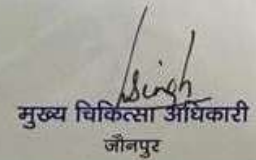 Singh
मुख्य चिकित्सा अधिकारी
जौनपुर